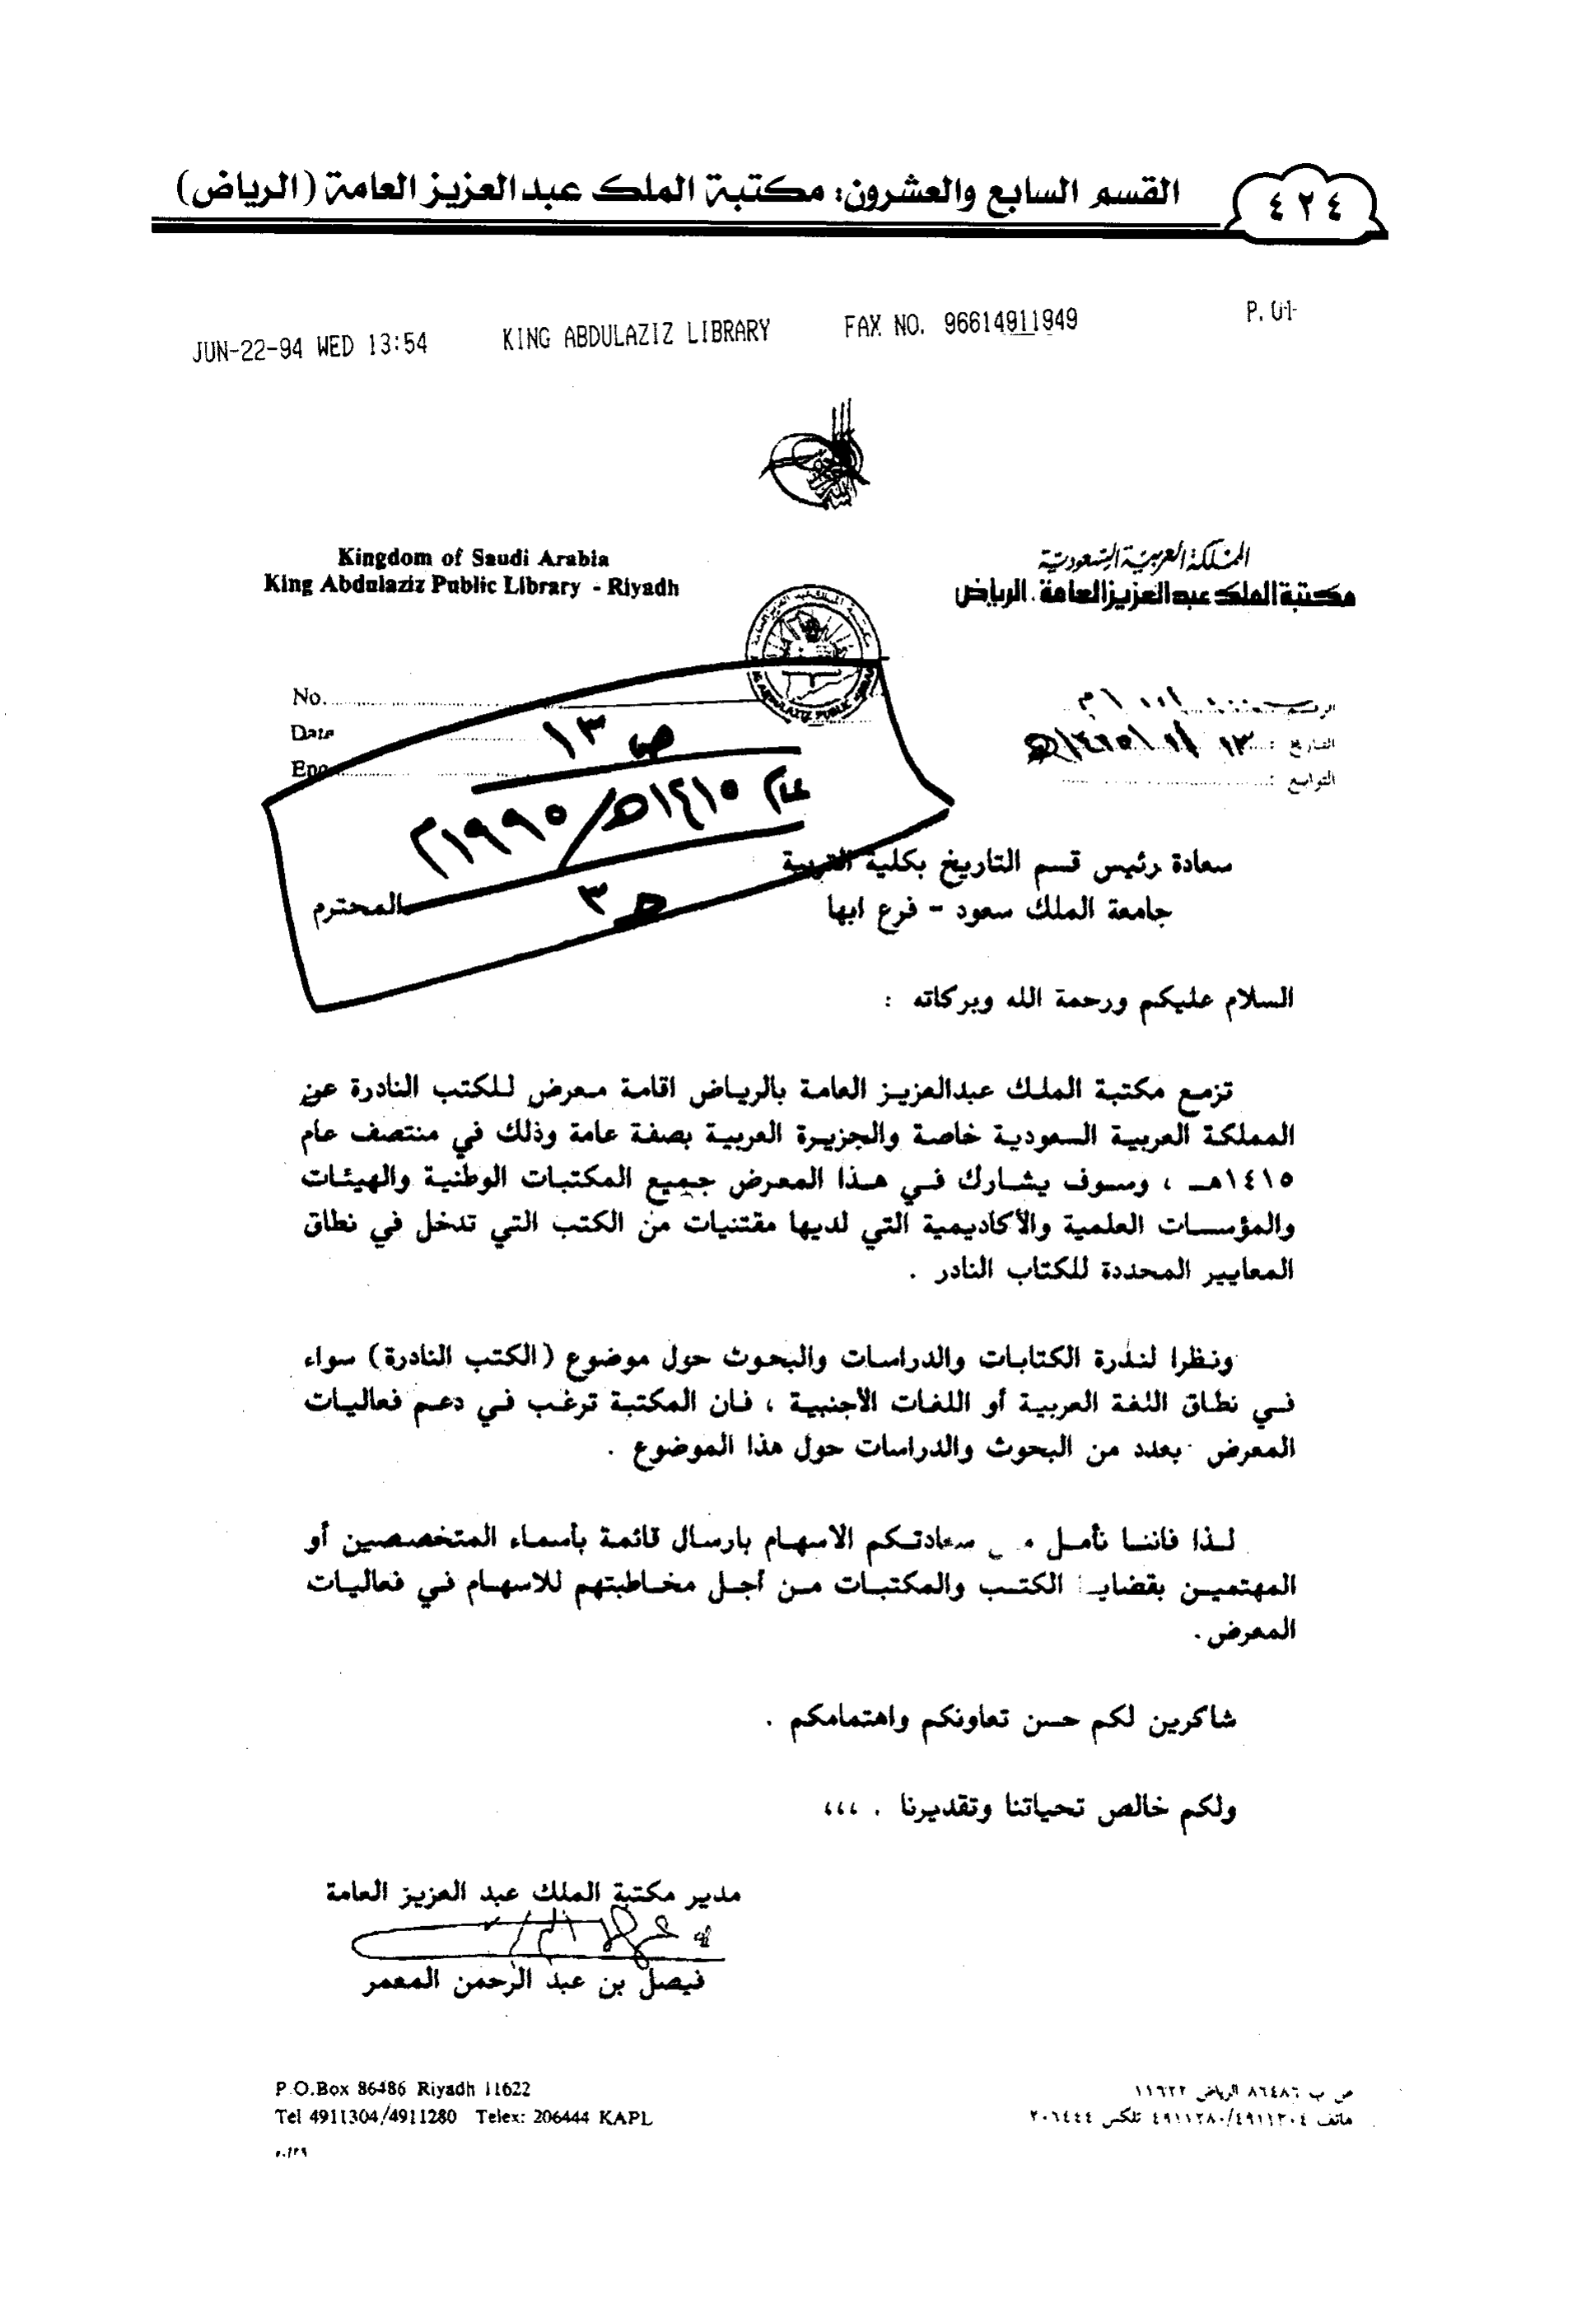 ٤٢٤
القسم السابع والعشرون: مكتبة الملك عبدالعزيز العامة (الرياض)
JUN-22-94 WED 13:54 KING ABDULAZIZ LIBRARY FAX NO. 96614911949 P.01
المملكة العربية السعودية
مكتبة الملك عبدالعزيز العامة . الرياض
Kingdom of Saudi Arabia
King Abdulaziz Public Library - Riyadh
No.
Date
Enc
التاريخ : ١٣ / ١ / ١٤١٥هـ
التوابع :
ص ١٣
عام ١٤١٥هـ/١٩٩٥م
جـ ٣
سعادة رئيس قسم التاريخ بكلية التربية
جامعة الملك سعود - فرع ابها المحترم
السلام عليكم ورحمة الله وبركاته :
تزمع مكتبة الملك عبدالعزيز العامة بالرياض اقامة معرض للكتب النادرة عن
المملكة العربية السعودية خاصة والجزيرة العربية بصفة عامة وذلك في منتصف عام
١٤١٥هـ ، وسوف يشارك في هذا المعرض جميع المكتبات الوطنية والهيئات
والمؤسسات العلمية والأكاديمية التي لديها مقتنيات من الكتب التي تدخل في نطاق
المعايير المحددة للكتاب النادر .
ونظرا لندرة الكتابات والدراسات والبحوث حول موضوع (الكتب النادرة) سواء
في نطاق اللغة العربية أو اللغات الأجنبية ، فان المكتبة ترغب في دعم فعاليات
المعرض بعدد من البحوث والدراسات حول هذا الموضوع .
لذا فاننا نأمل من سعادتكم الاسهام بارسال قائمة بأسماء المتخصصين أو
المهتمين بقضايا الكتب والمكتبات من أجل مخاطبتهم للاسهام في فعاليات
المعرض .
شاكرين لكم حسن تعاونكم واهتمامكم .
ولكم خالص تحياتنا وتقديرنا . ،،،
مدير مكتبة الملك عبد العزيز العامة
فيصل بن عبد الرحمن المعمر
P.O.Box 86486 Riyadh 11622
Tel 4911304/4911280 Telex: 206444 KAPL
ص ب ٨٦٤٨٦ الرياض ١١٦٢٢
هاتف ٤٩١١٣٠٤/٤٩١١٢٨٠ تلكس ٢٠٦٤٤٤